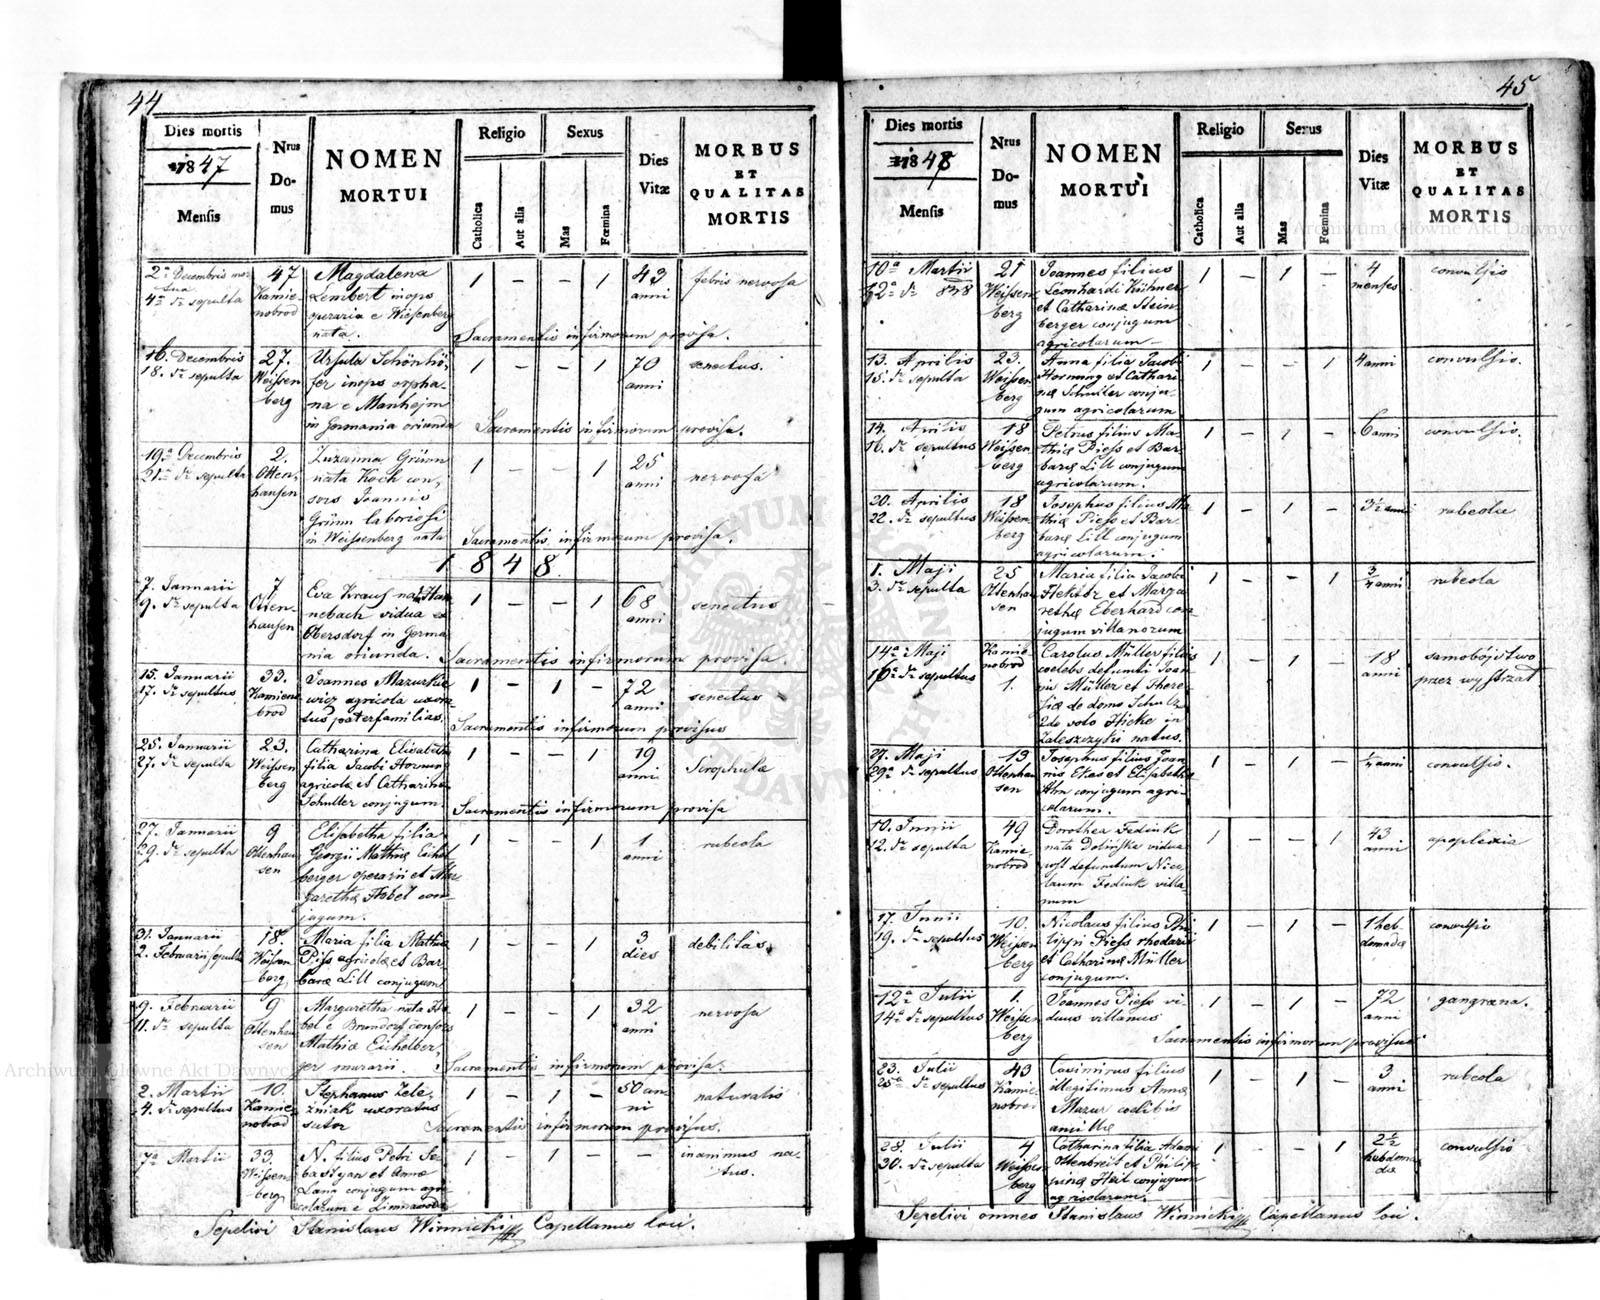 44
Dies mortis
1847
Mensis
Nrus
Do-
mus
NOMEN
MORTUI
Religio
Catholica
Aut alia
Sexus
Mas
Fœmina
Dies
Vitæ
MORBUS
ET
QUALITAS
MORTIS
2a Decembris mor
tua
4a do sepulta
47
Kamie-
nobrod
Magdalena
Lembert inops
operaria e Wiesenberg
nata.
1 – – 1
43
anni
febris nervosa
Sacramentis infirmorum provisa.
16. Decembris
18. do sepulta
27.
Weissen
berg
Ursula Schönhö-
fer inops orpha-
na e Manhejm
in Germania oriunda
1 – – 1
70
anni
senectus.
Sacramentis infirmorum provisa.
19a Decembris
21a do sepulta
2.
Otten-
hausen
Zuzanna Grünn
nata Koch con-
sors Joannis
Grünn laboriosi
in Weissenberg nata
1 – – 1
25
anni
nervosa
Sacramentis infirmorum provisa.
1848.
7. Januarii
9. do sepulta
7
Otten-
hausen
Eva Kraus nata Han
nebach vidua ex
Obersdorf in Germa
nia oriunda.
1 – – 1
68
anni
senectus
Sacramentis infirmorum provisa.
15. Januarii
17. do sepultus
33.
Kamieno
brod
Joannes Mazurkie
wicz agricola uxora
tus paterfamilias.
1 – 1 –
72
anni
senectus
Sacramentis infirmorum provisus
25. Januarii
27. do sepulta
23.
Weissen
berg
Catharina Elisabetha
filia Jacobi Hornung
agricolæ et Catharinæ
Schuller conjugum.
1 – – 1
19
anni
Scrophulæ
Sacramentis infirmorum provisa
27. Januarii
29. do sepulta
9
Ottenhau
sen
Elisabetha filia
Georgii Mathiæ Eichel
berger operarii et Mar
garethæ Habel con-
jugum.
1 – – 1
1
anni
rubeola
31. Januarii
2. Februarii sepulta
18.
Weissen
berg
Maria filia Mathiæ
Piess agricolæ et Bar-
baræ Lill conjugum
1 – – 1
3
dies
debilitas
9. Februarii
11. do sepulta
9
Ottenhau
sen
Margaretha nata Ha
bel e Brundorf consors
Mathiæ Eichelber-
ger murarii.
1 – – 1
32
anni
nervosa
Sacramentis infirmorum provisa.
2. Martii
4. do sepultus
10.
Kamie-
nobrod
Stephanus Zele-
zniak uxoratus
sutor
1 – 1 –
50 an-
ni
naturalis
Sacramentis infirmorum provisus.
7a Martii
33.
Weissen
berg
N. filius Petri Se-
bastyan et Annæ
Lana conjugum agri
colarum e Zimnawoda
1 – 1 – –
inanimus na-
tus.
Sepelivi Stanislaus Winnicki Capellanus loci.
45
Dies mortis
1848
Mensis
Nrus
Do-
mus
NOMEN
MORTUI
Religio
Catholica
Aut alia
Sexus
Mas
Fœmina
Dies
Vitæ
MORBUS
ET
QUALITAS
MORTIS
10a Martii
12a do 848
21
Weissen-
berg
Joannes filius
Leonhardi Kühner
et Catharinæ Stein
berger conjugum
agricolarum
1 – 1 –
4
menses
convulsio
13. Aprilis
15. do sepulta
23.
Weissen
berg
Anna filia Jacobi
Hornung et Cathari
næ Schuller conju-
gum agricolarum
1 – – 1
4 anni
convulsio.
14. Aprilis
16. do sepultus
18
Weissen
berg
Petrus filius Ma-
thiæ Piess et Bar-
baræ Lill conjugum
agricolarum.
1 – 1 –
6 anni
convulsio.
20. Aprilis
22. do sepultus
18
Weissen
berg
Josephus filius Ma
thiæ Piess et Bar-
baræ Lill conjugum
agricolarum.
1 – 1 –
3½ anni
rubeolæ
1. Maji
3. do sepulta
25
Ottenhau
sen
Maria filia Jacobi
Hektor et Marga
rethæ Eberhard con-
jugum villanorum
1 – – 1
3/4 anni
rubeola
14a Maji
16a do sepultus
Kamie
nobrod
1.
Carolus Müller filius
coelebs defuncti Joan
nis Müller et There-
siæ de domo Schulz
2do voto Hicke in
Zaleszczyki natus.
1 – 1 –
18
anni
samobójstwo
przez wystrzał
27. Maji
29a do sepultus
13
Ottenhau
sen
Josephus filius Joan
nis Ekas et Elisabethæ
Ahn conjugum agri-
colarum.
1 – 1 –
¼ anni
convulsio.
10. Junii
12. do sepulta
49
Kamie-
nobrod
Dorothea Fediuk
nata Dolinska vidua
post defunctum Nico
laum Fediuk villa
num
1 – – 1
43
anni
apoplexia
17. Junii
19. do sepultus
10.
Weissen
berg
Nicolaus filius Phi
lippi Piess rhodarii
et Catharinæ Müller
conjugum.
1 – 1 –
1 heb-
domadæ
convulsio
12a Julii
14a do sepultus
1.
Weissen
berg
Joannes Piess vi-
duus villanus
1 – 1 –
72
anni
gangræna.
Sacramentis infirmorum provisus
23. Julii
25a do sepultus
43
Kamie-
nobrod
Casimirus filius
illegitimus Annæ
Mazur coelibis
ancillæ
1 – 1 –
3
anni
rubeola
28. Julii
30. do sepulta
4
Weissen
berg
Catharina filia Adami
Ottenbreit et Philip-
pinæ Heil conjugum
agricolarum.
1 – – 1
2½
hebdoma
dæ
convulsio
Sepelivi omnes Stanislaus Winnicki Capellanus loci.
Archiwum Główne Akt Dawnych
Archiwum Główne Akt Dawnych